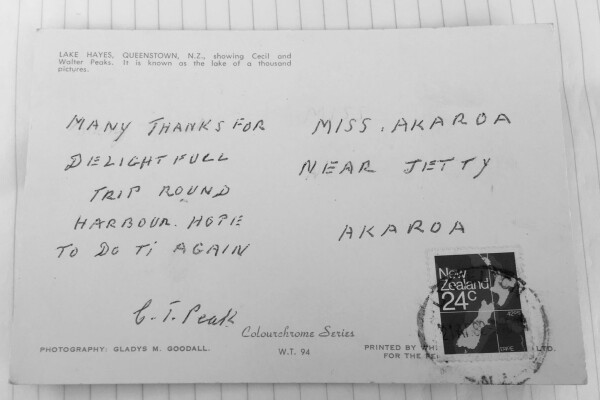 LAKE HAYES, QUEENSTOWN, N.Z., showing Cecil and
Walter Peaks. It is known as the lake of a thousand
pictures.
MANY THANKS FOR
DELIGHTFULL
TRIP ROUND
HARBOUR. HOPE
TO DO TI AGAIN
C. T. Peak
MISS. AKAROA
NEAR JETTY
AKAROA
New
Zealand
24c
Colourchrome Series
PHOTOGRAPHY: GLADYS M. GOODALL.
W.T. 94
PRINTED BY
LTD.
FOR THE